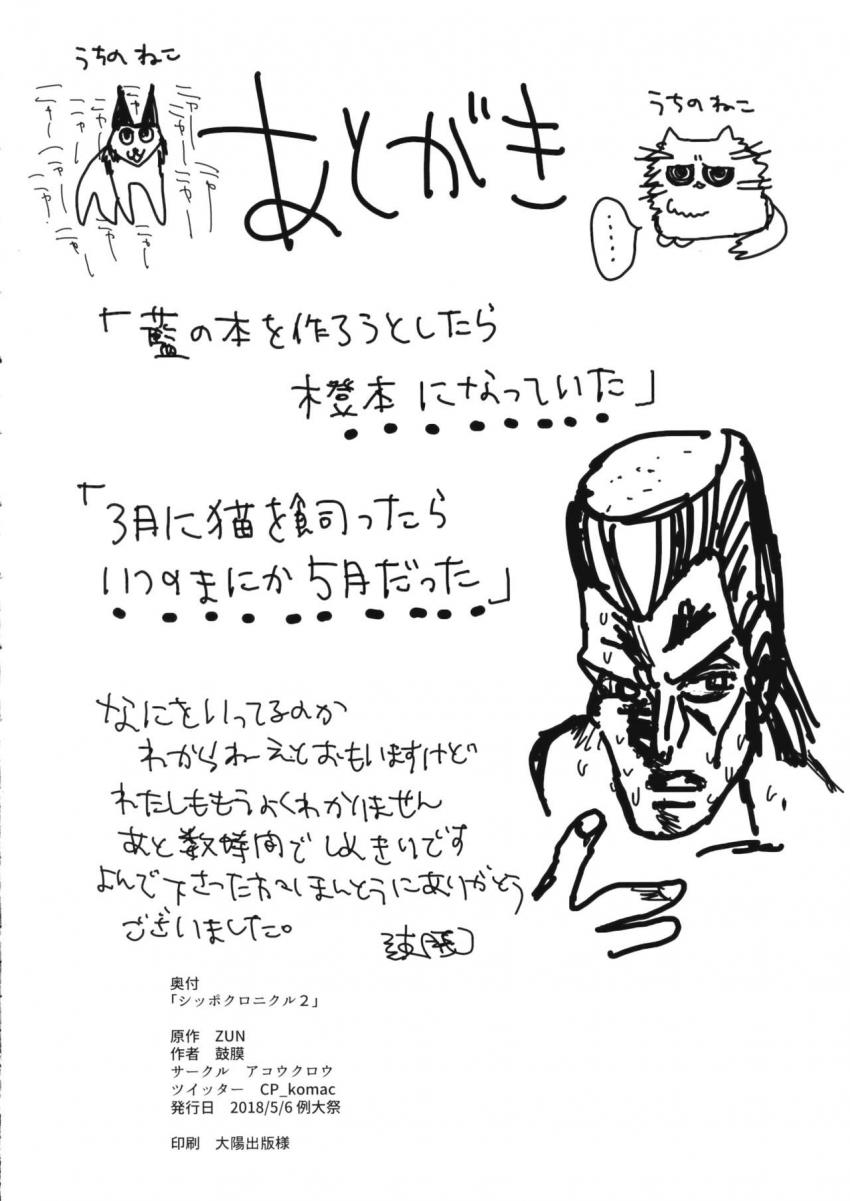 うちのねこ
あとがき
うちのねこ
……
「藍の本を作ろうとしたら
橙本になっていた」
「3月に猫を飼ったら
いつのまにか5月だった」
なにをいってるのか
わからねーとおもいますけど
わたしももうよくわかりません
あと数時間でしめきりです
よんで下さった方々ほんとうにありがとう
ございました。
奥付
「シッポクロニクル2」
原作　ZUN
作者　鼓膜
サークル　アコウクロウ
ツイッター　CP_komac
発行日　2018/5/6 例大祭
印刷　大陽出版様